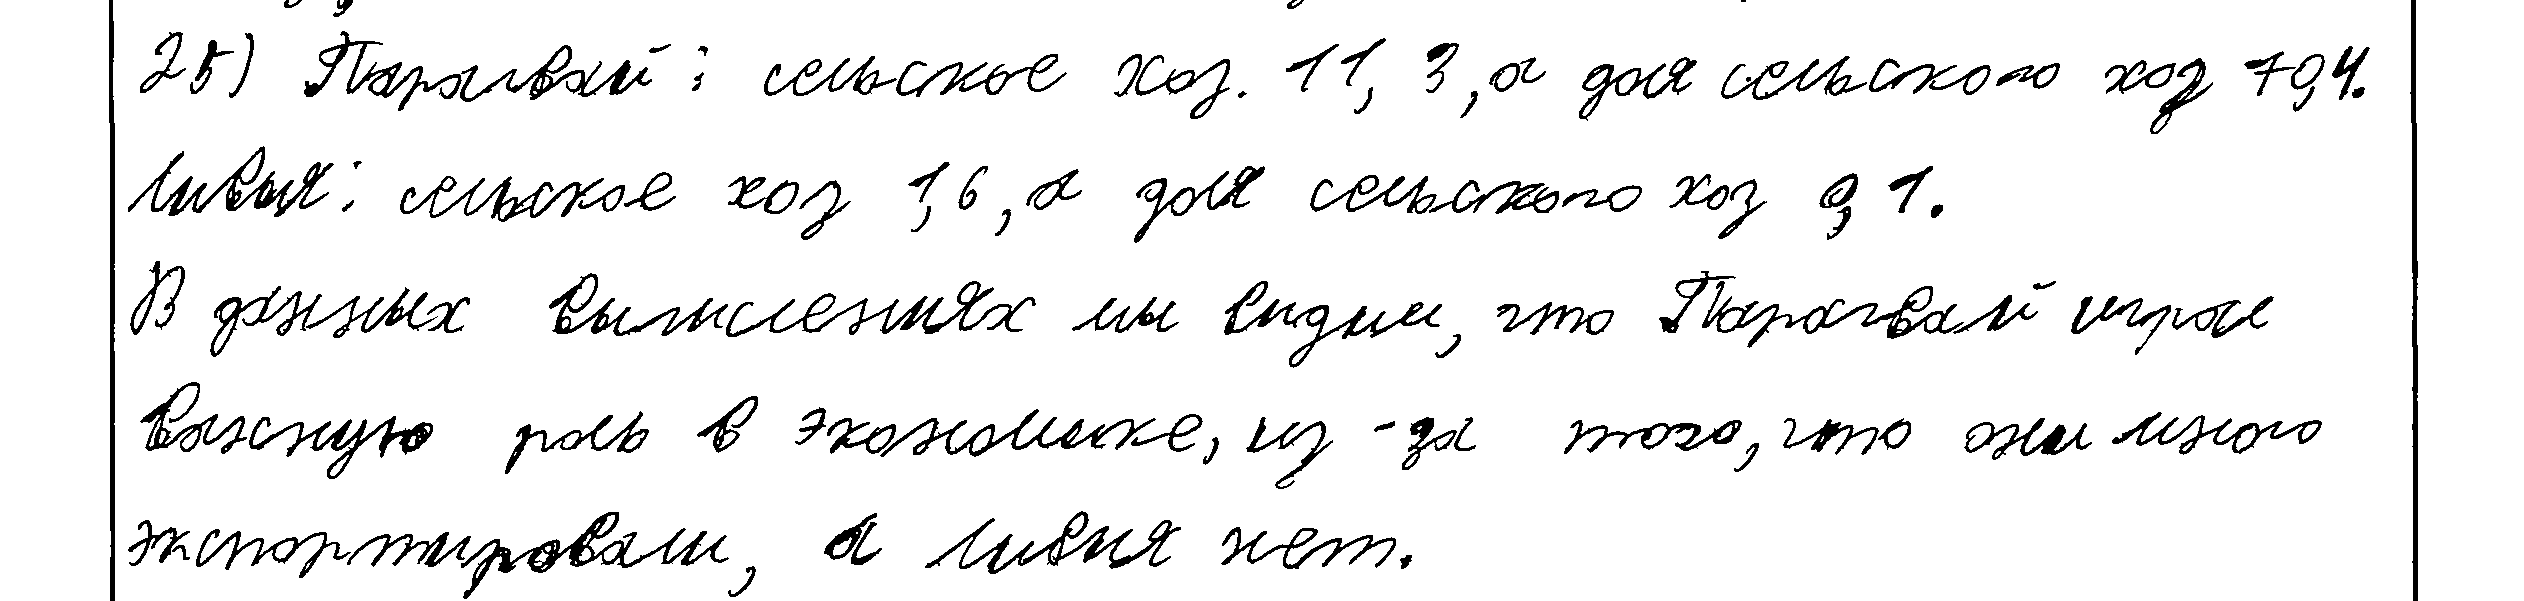 25) Парагвай: сельское хоз. 11,3, а доля сельского хоз 70,4.
Ливия: сельское хоз 1,6, а доля сельского хоз 0,1.
В данных вычислениях мы видим, что Парагвай играл
важную роль в экономике, из-за того, что они много
экспортировали, а Ливия нет.